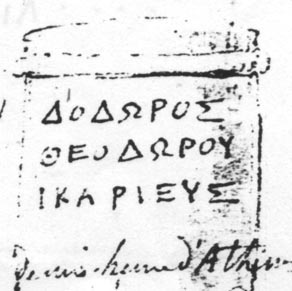 ΔΌΔΩΡΟΣ
ΘΕΟΔΩΡΟΥ
ΙΚΑΡΙΕΥΣ
heure d'Athen